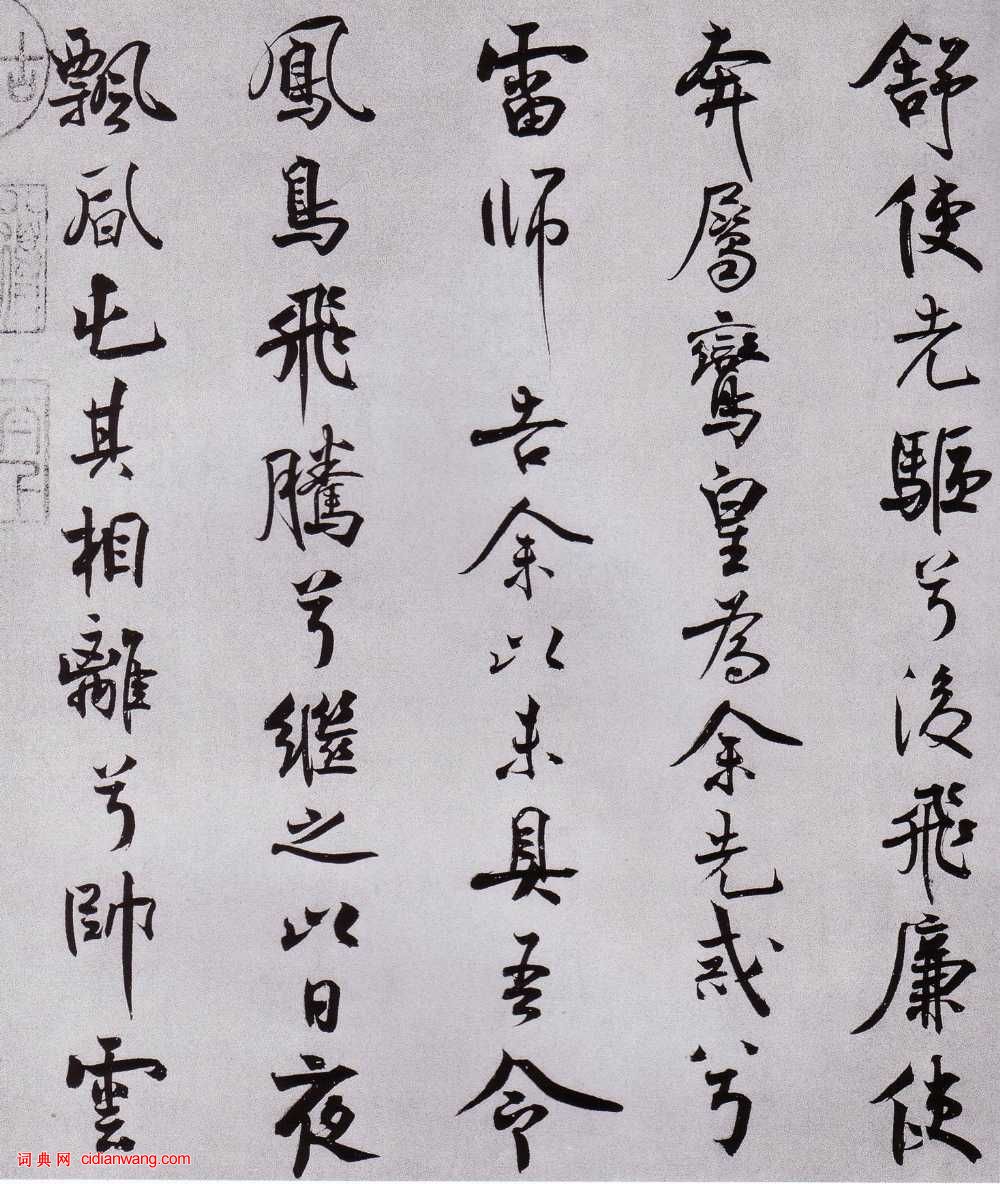 舒使先驅兮後飛廉使
奔屬鸞皇為余先戒兮
雷师告余以未具吾令
鳳鳥飛騰兮繼之以日夜
飄風屯其相離兮帥雲
词典网 cidianwang.com